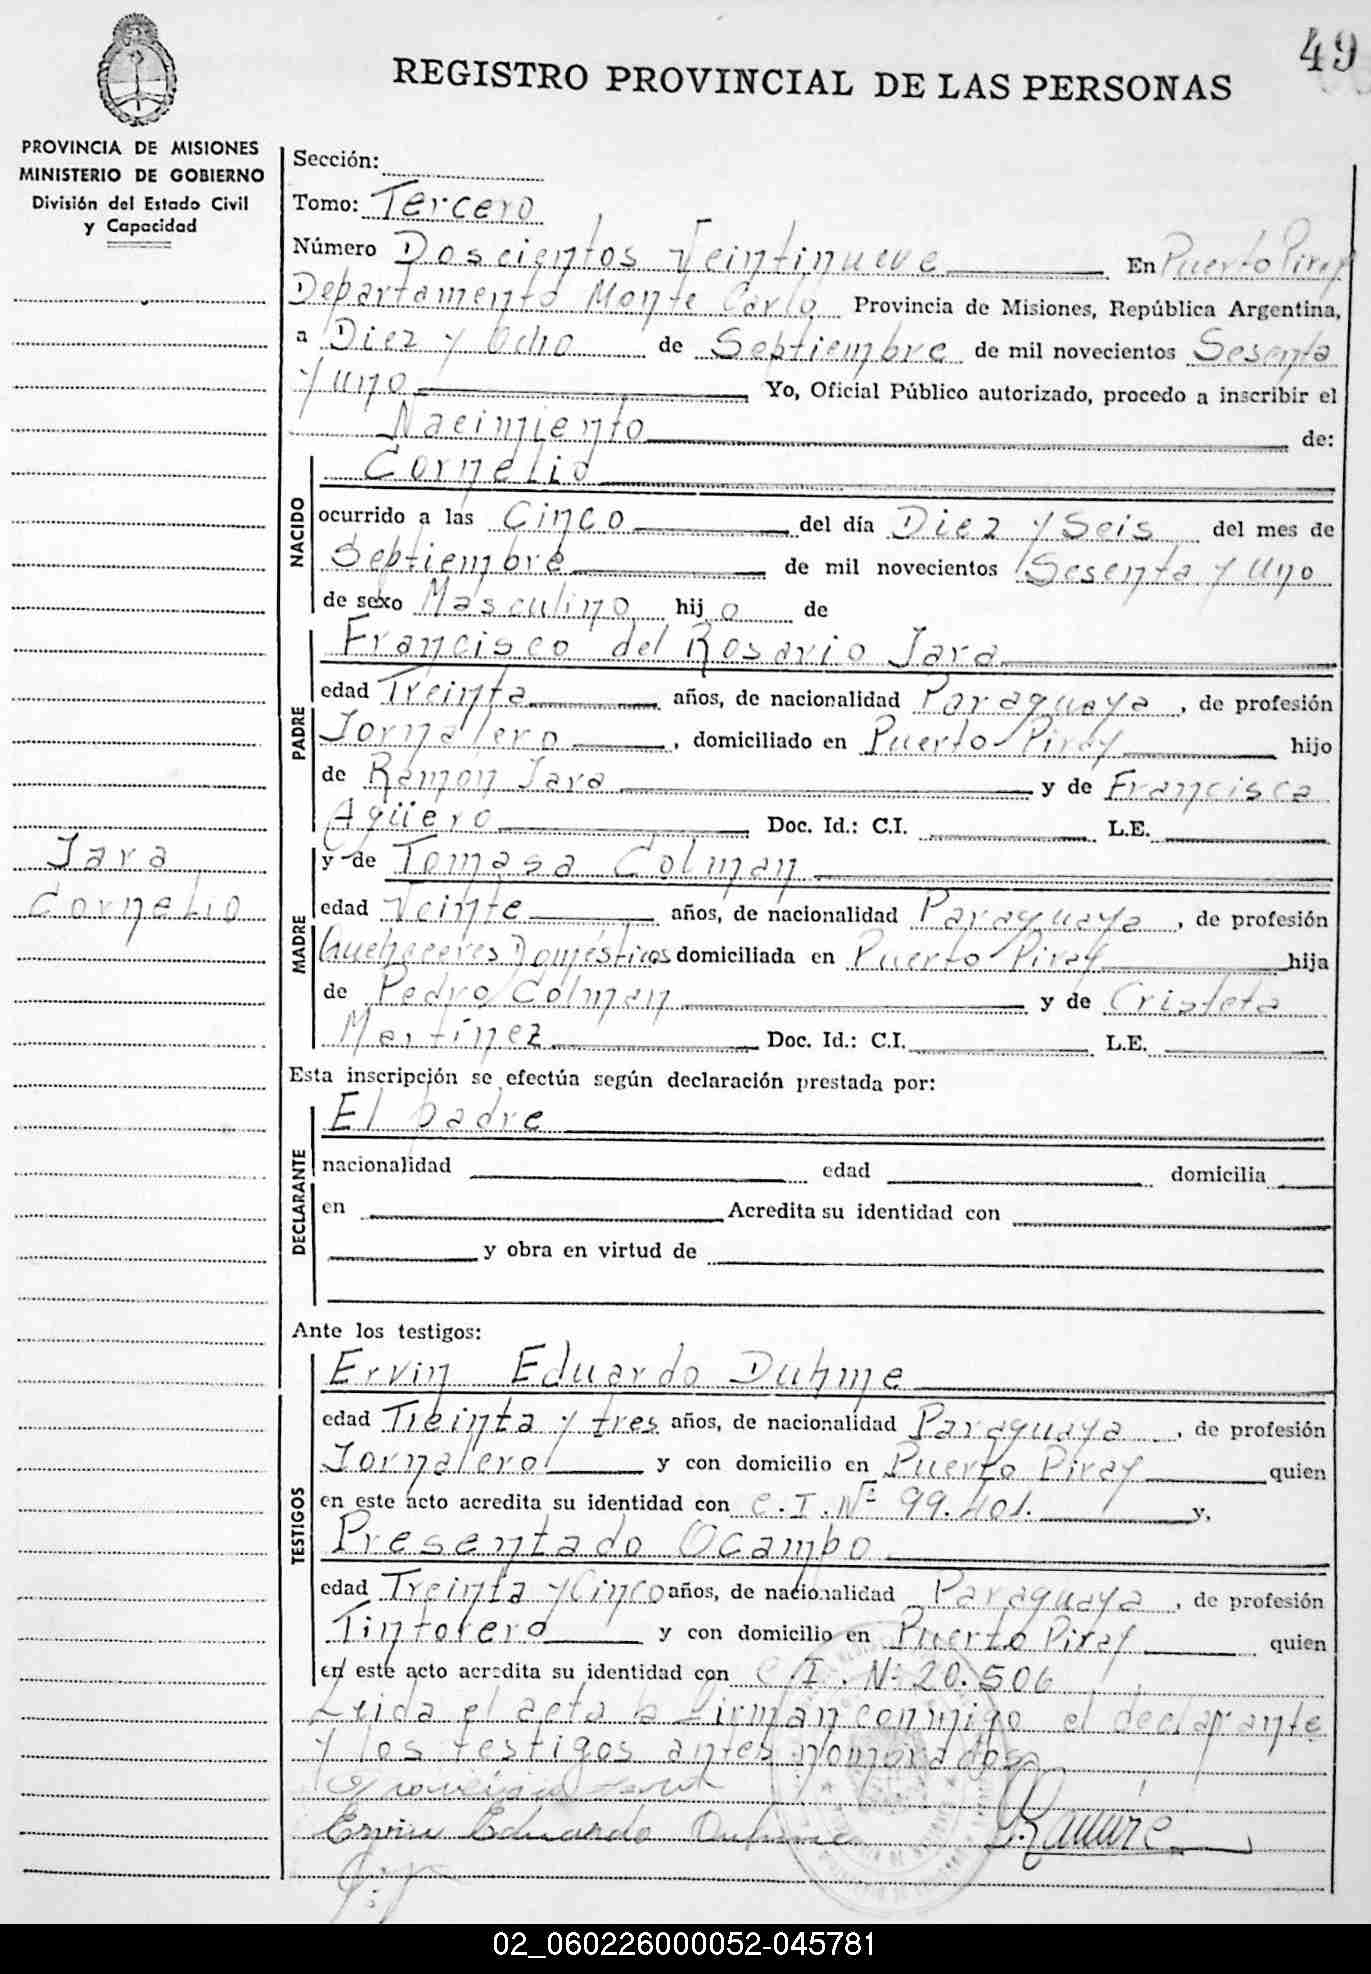 49
REGISTRO PROVINCIAL DE LAS PERSONAS
PROVINCIA DE MISIONES
MINISTERIO DE GOBIERNO
División del Estado Civil
y Capacidad
Jara
Cornelio
Sección:
Tomo: Tercero
Número Doscientos Veintinueve En Puerto Piray
Departamento Monte Carlo Provincia de Misiones, República Argentina,
a Diez y Ocho de Septiembre de mil novecientos Sesenta
y uno Yo, Oficial Público autorizado, procedo a inscribir el
Nacimiento de:
NACIDO
Cornelio
ocurrido a las Cinco del día Diez y Seis del mes de
Septiembre de mil novecientos Sesenta y Uno
de sexo Masculino hijo de
PADRE
Francisco del Rosario Jara
edad Treinta años, de nacionalidad Paraguaya, de profesión
Jornalero, domiciliado en Puerto Piray hijo
de Ramón Jara y de Francisca
Agüero Doc. Id.: C.I. L.E.
MADRE
y de Tomasa Colman
edad Veinte años, de nacionalidad Paraguaya, de profesión
Quehaceres Domésticos domiciliada en Puerto Piray hija
de Pedro Colman y de Cristeta
Martínez Doc. Id.: C.I. L.E.
Esta inscripción se efectúa según declaración prestada por:
DECLARANTE
El padre
nacionalidad edad domicilia
en Acredita su identidad con
y obra en virtud de
Ante los testigos:
TESTIGOS
Ervin Eduardo Duhme
edad Treinta y tres años, de nacionalidad Paraguaya, de profesión
Jornalero y con domicilio en Puerto Piray quien
en este acto acredita su identidad con C.I. Nº 99.401. y,
Presentado Ocampo
edad Treinta y Cinco años, de nacionalidad Paraguaya, de profesión
Tintorero y con domicilio en Puerto Piray quien
en este acto acredita su identidad con C.I. Nº 20.506
Leida el acta la firman conmigo el declarante
y los testigos antes nombrados
Ervin Eduardo Duhme
02_060226000052-045781